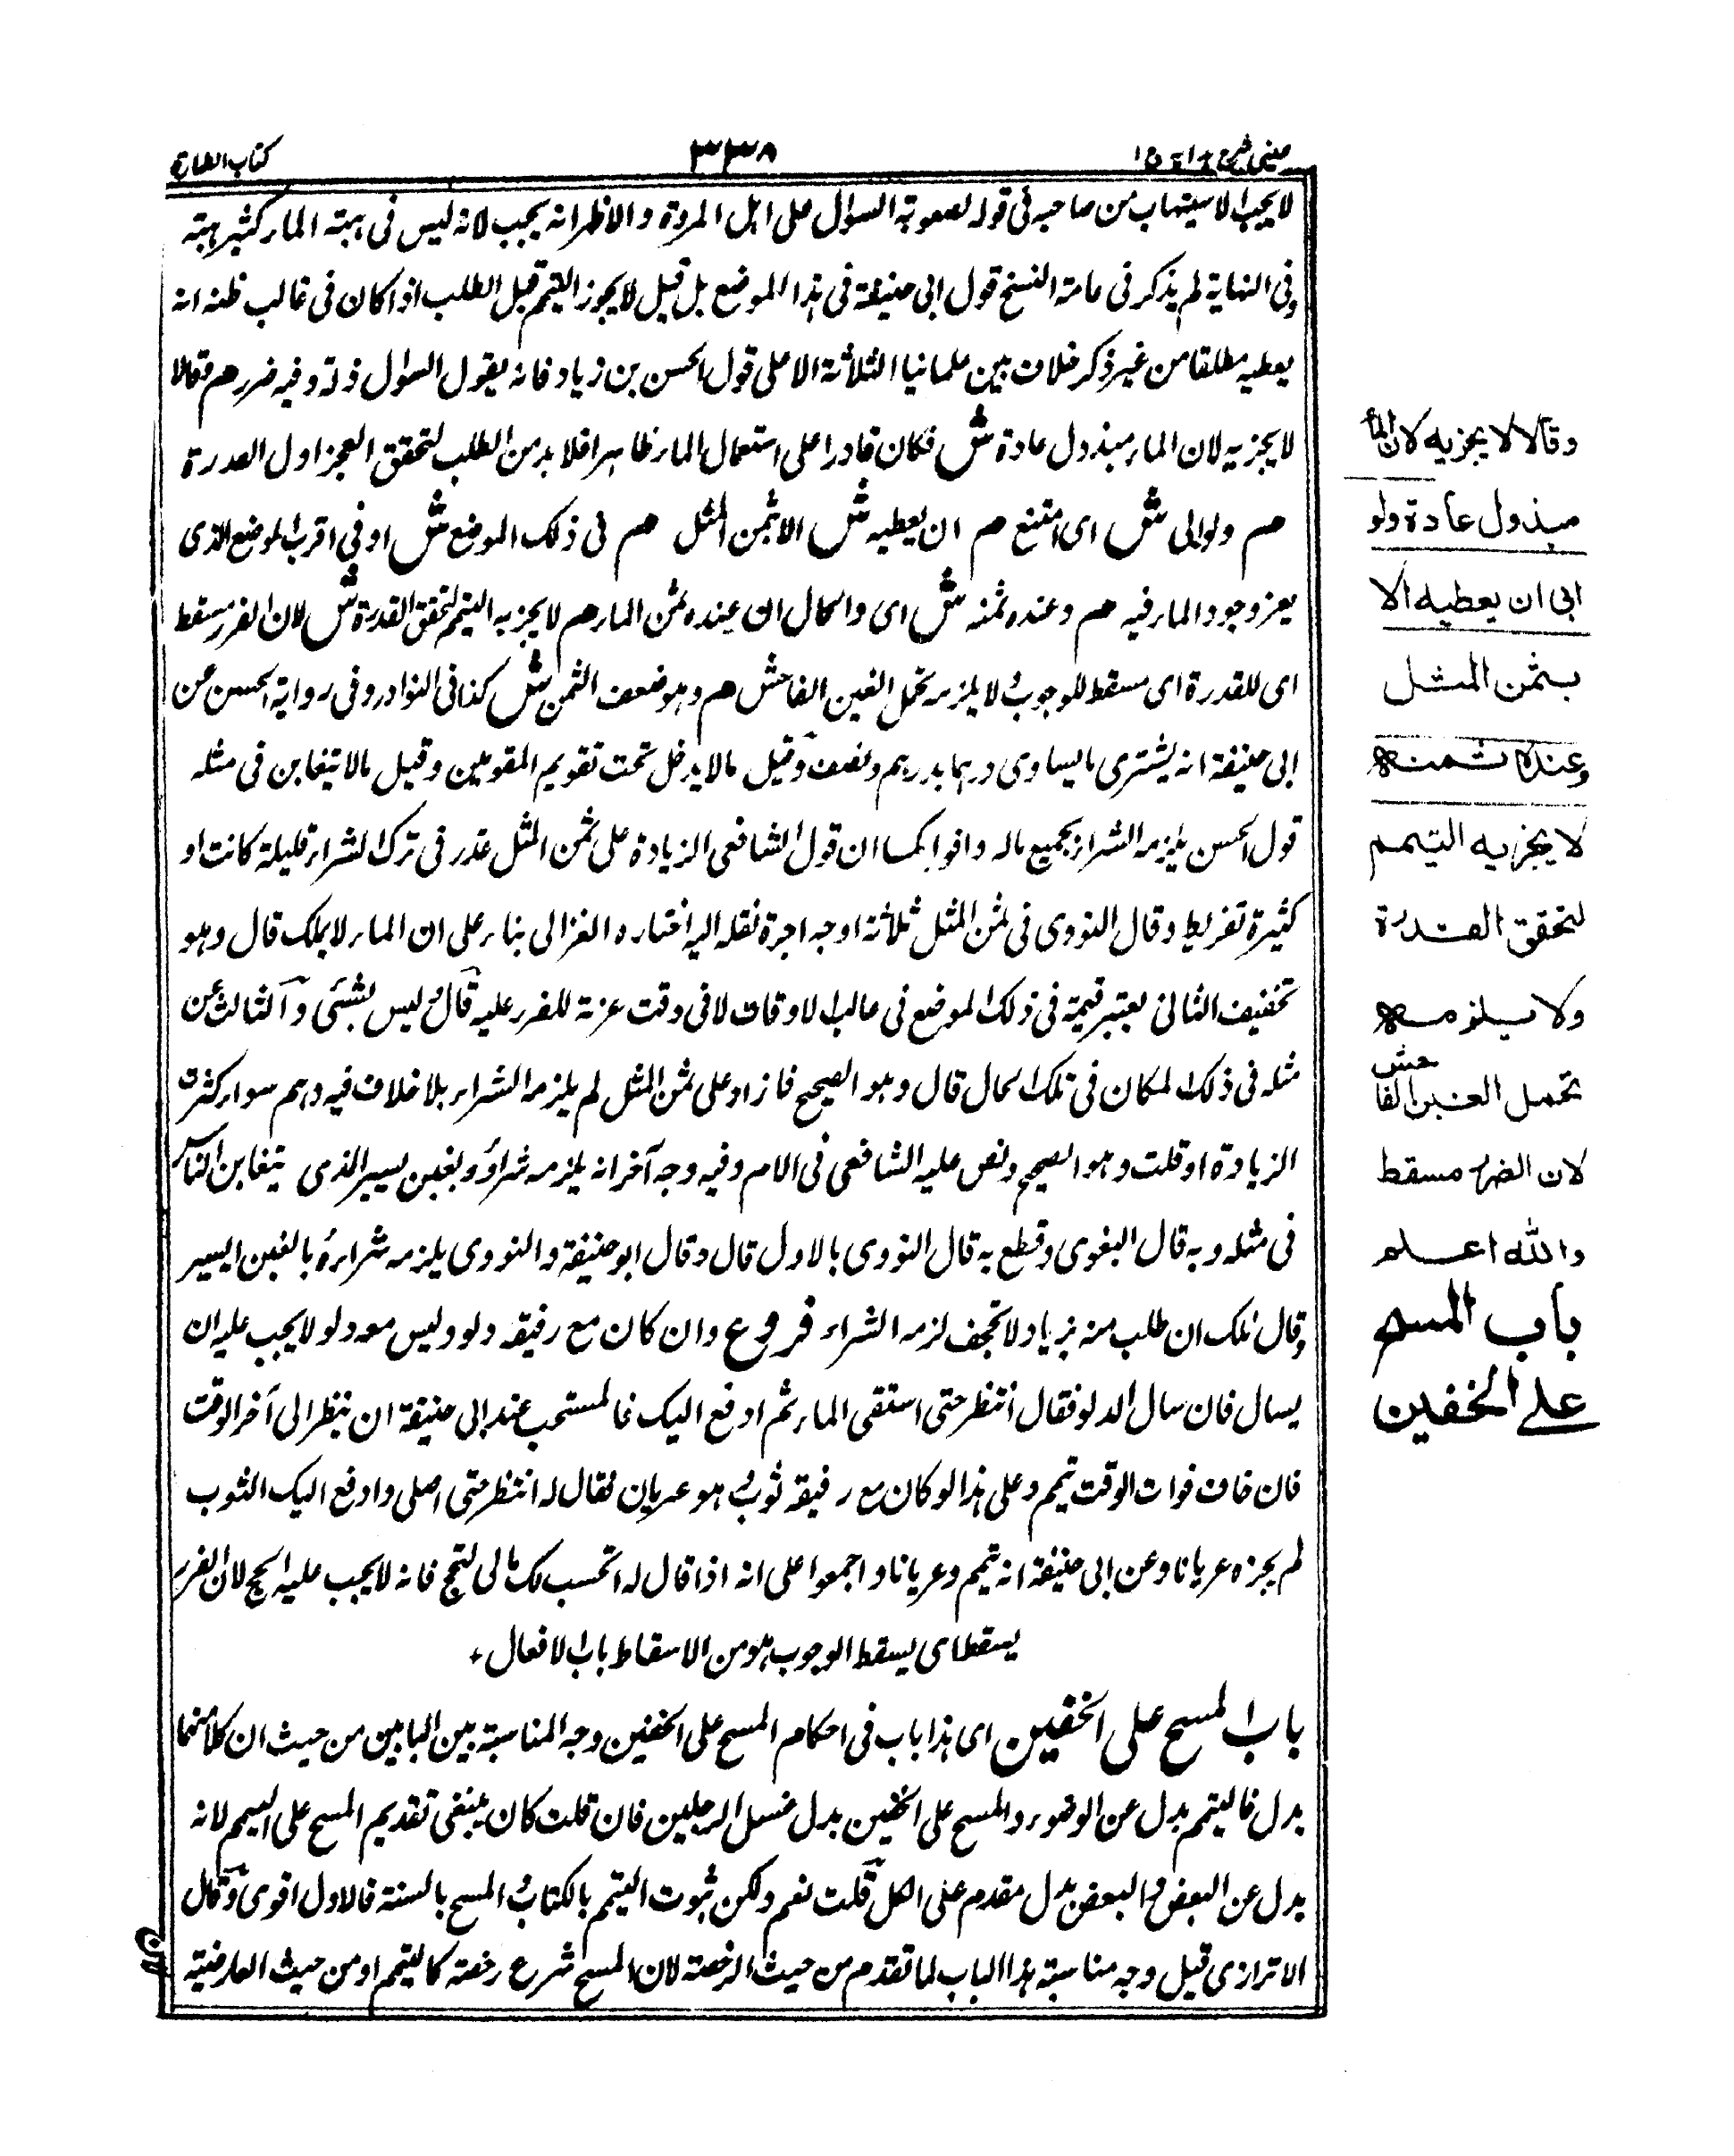 عینی شرح ہدایہ ج ١
٣٣٨
كتاب الطهارة
لا يجب الاستيهاب من صاحبه فى قوله لصعوبة السؤال على اهل المروة والاظهر انه يجب لانه ليس فى هبة الماء كثير هبته
وفى النهاية لم يذكر فى عامة النسخ قول ابى حنيفة فى هذا الموضع بل قيل لا يجوز التيمم قبل الطلب اذا كان فى غالب ظنه انه
يعطيه مطلقا من غير ذكر خلاف بين علمائنا الثلاثة الا على قول الحسن بن زياد فانه يقول السوال ذلة وفيه ضرر هم وقالا
لا يجزيه لان الماء مبذول عادة ش فكان قادرا على استعمال الماء ظاهرا فلا بد من الطلب لتحقق العجز اول القدرة
هم ولو ابى ش اى امتنع هم ان يعطيه ش الا بثمن المثل هم فى ذلك الموضع ش او فى اقرب الموضع الذى
يعز وجود الماء فيه هم وعنده ثمنه ش اى والحال ان عنده ثمن الماء هم لا يجزيه التيمم لتحقق القدرة ش لان الضرر مسقط
اى للقدرة اى مسقط للوجوب ولا يلزمه تحمل الغبن الفاحش هم وهو ضعف الثمن ش كذا فى النوادر وفى رواية الحسن عن
ابى حنيفة انه يشترى ما يساوى درهما بدرهم ونصف وقيل مالا يدخل تحت تقويم المقومين وقيل مالا يتغابن فى مثله
قول الحسن يلزمه الشراء بجميع ماله وافواكما ان قول الشافعى الزيادة على ثمن المثل عذر فى ترك الشراء قليلة كانت او
كثيرة تفريط وقال النووى فى ثمن المثل ثلاثة اوجه اجرة نقله اليه اختاره الغزالى بناء على ان الماء لا يملك قال وهو
تخفيف الثانى يعتبر قيمة فى ذلك الموضع فى غالب الاوقات لا فى وقت عزته للضرر عليه قال وليس بشئى والثالث عن
مثله فى ذلك المكان فى تلك الحال قال وهو الصحيح فازاد على ثمن المثل لم يلزمه الشراء بلا خلاف فيه دهم سواء كثرت
الزيادة او قلت وهو الصحيح ونص عليه الشافعى فى الام وفيه وجه آخر انه يلزمه شراؤه بغبن يسير الذى يتغابن الناس
فى مثله وبه قال البغوى وقطع به قال النووى بالاول قال وقال ابو حنيفة والنووى يلزمه شراءه بالغبن اليسير
وقال مالك ان طلب منه بزياد لا تجحف لزمه الشراء فروع وان كان مع رفيقه دلو وليس معه دلو لا يجب عليه ان
يسال فان سال الدلو فقال انتظر حتى استقى الماء ثم ادفع اليك فالمستحب عند ابى حنيفة ان ينتظر الى آخر الوقت
فان خاف فوات الوقت تيمم وعلى هذا لو كان مع رفيقه ثوب وهو عريان فقال له انتظر حتى اصلى وادفع اليك الثوب
لم يجزه عريانا وعن ابى حنيفة انه تيمم وعريانا واجمعوا على انه اذا قال له اتحسب لك مالى لتحج فانه لا يجب عليه الحج لان الضرر
يسقط اى يسقط الوجوب وهو من الاسقاط باب الافعال
باب المسح على الخفين اى هذا باب فى احكام المسح على الخفين وجه المناسبة بين البابين من حيث ان كلا منهما
بدل فالتيمم بدل عن الوضوء والمسح على الخفين بدل غسل الرجلين فان قلت كان ينبغى تقديم المسح على التيمم لانه
بدل عن البعض والبعض بدل مقدم على الكل قلت نعم ولكن ثبوت التيمم بالكتاب والمسح بالسنة فالاول اقوى وقال
الاترازى قيل وجه مناسبة هذا الباب لما تقدم من حيث الرخصة لان المسح شرع رخصة كالتيمم او من حيث العارضية
لان
وقالا لا يجزيه لان الماء
مبذول عادة ولو
ابى ان يعطيه الا
بثمن المثل
وعنده ثمنه
لا يجزيه التيمم
لتحقق القدرة
ولا يلزمه
تحمل الغبن الفاحش
لان الضرر مسقط
والله اعلم
باب المسح
على الخفين